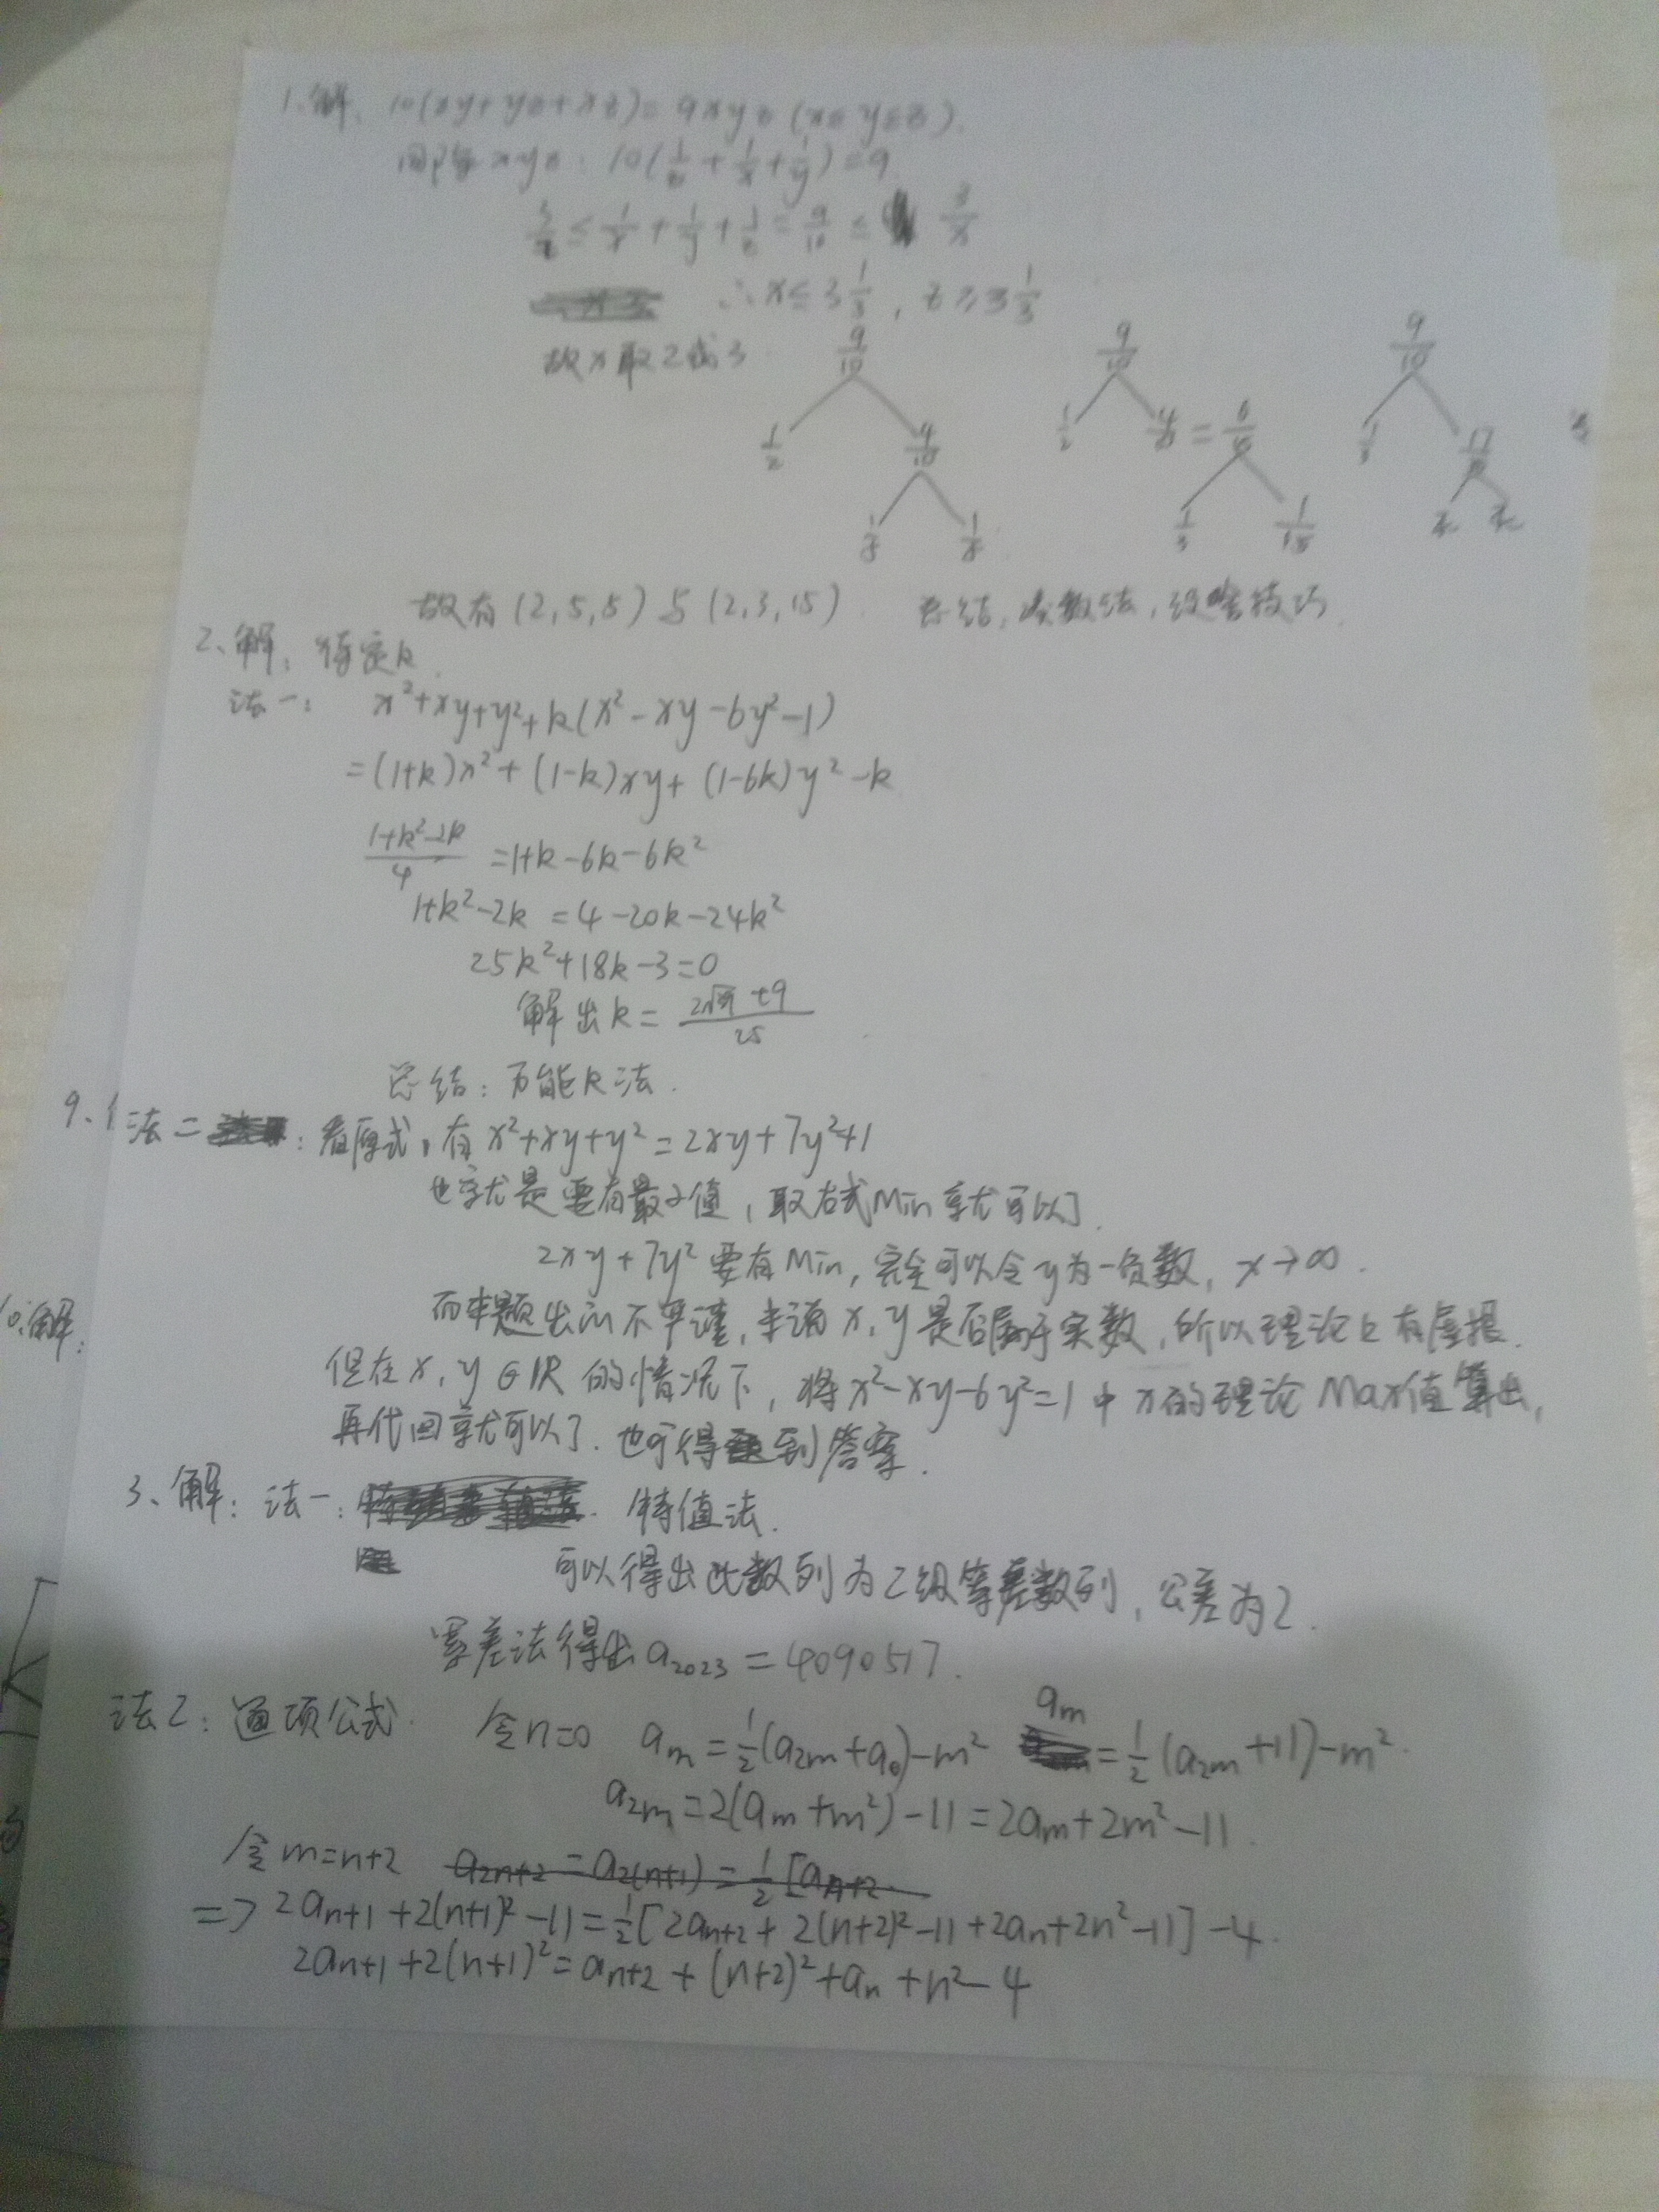 1.解、10(xy+yz+xz)=9xyz (x≤y≤z).
同除xyz: 10(1/z+1/x+1/y)=9
3/z≤1/x+1/y+1/z=9/10≤3/x
∴x≤3 1/3, z≥3 1/3
故x取2或3
9/10 9/10 9/10
1/2 4/10 1/2 = 6/15 1/3 17/30
1/5 1/5 1/3 1/15
故有(2,5,5)与(2,3,15). 总结:
2、解: 待定k.
法一: x²+xy+y²+k(x²-xy-6y²-1)
=(1+k)x²+(1-k)xy+(1-6k)y²-k
(1+k²-2k)/4 =1+k-6k-6k²
1+k²-2k =4-20k-24k²
25k²+18k-3=0
解出k= +9)/25
总结: 万能k法.
9、
法二: 看原式, 有x²+xy+y²=2xy+7y²+1
也就是要有最小值, 取右式Min就可以了.
2xy+7y²要有Min, 完全可以令y为一负数, x→∞.
而本题出的不严谨, 未说x,y是否属于实数, 所以理论上有虚根.
10.解:
但在x,y∈R的情况下, 将x²-xy-6y²=1中x的理论Max值算出,
再代回就可以了. 也可得到答案.
3、解: 法一: 特值法.
可以得出此数列为二级等差数列, 公差为2.
累差法得出a₂₀₂₃=4090517.
法2: 通项公式. 令n=0 aₘ=1/2(a₂ₘ+a₀)-m² aₘ=1/2(a₂ₘ+11)-m².
a₂ₘ=2(aₘ+m²)-11=2aₘ+2m²-11.
令m=n+2 a₂ₙ₊₂=a₂₍ₙ₊₁₎=1/2[aₙ₊₂
=>2aₙ₊₁+2(n+1)²-11=1/2[2aₙ₊₂+2(n+2)²-11+2aₙ+2n²-11]-4.
2aₙ₊₁+2(n+1)²=aₙ₊₂+(n+2)²+aₙ+n²-4